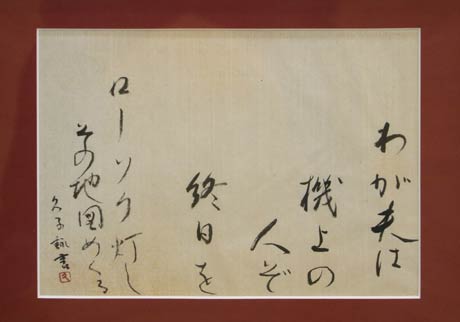 わが夫は
機上の
人ぞ
終日を
ローソク灯し
その地図めくる
久子詠書